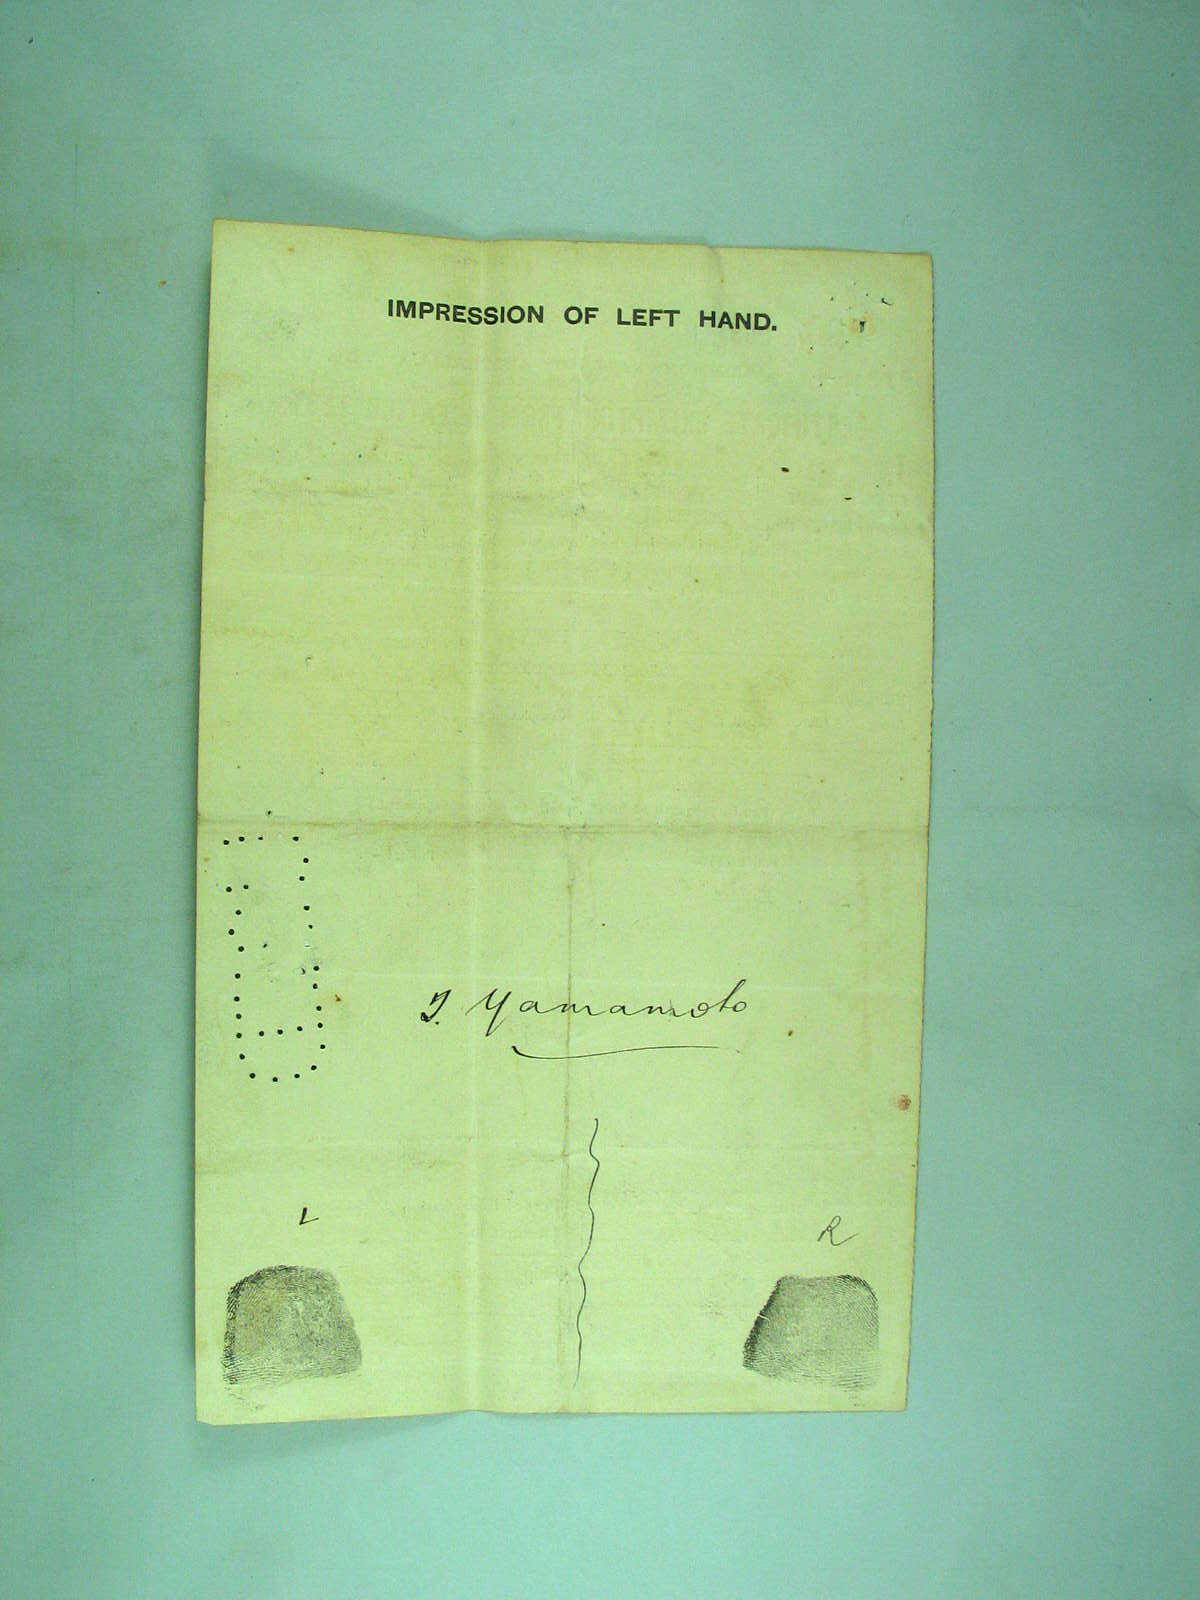 IMPRESSION OF LEFT HAND.
J. Yamamoto
L
R